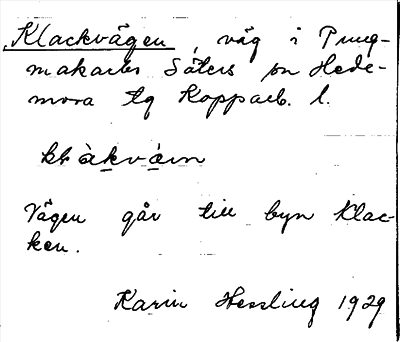 Klackvägen, väg i Pung-
makarbo Säters sn Hede-
mora tg Kopparb. l.
klàkvàın
Vägen går till byn Klac-
ken.
Karin Hessling 1929